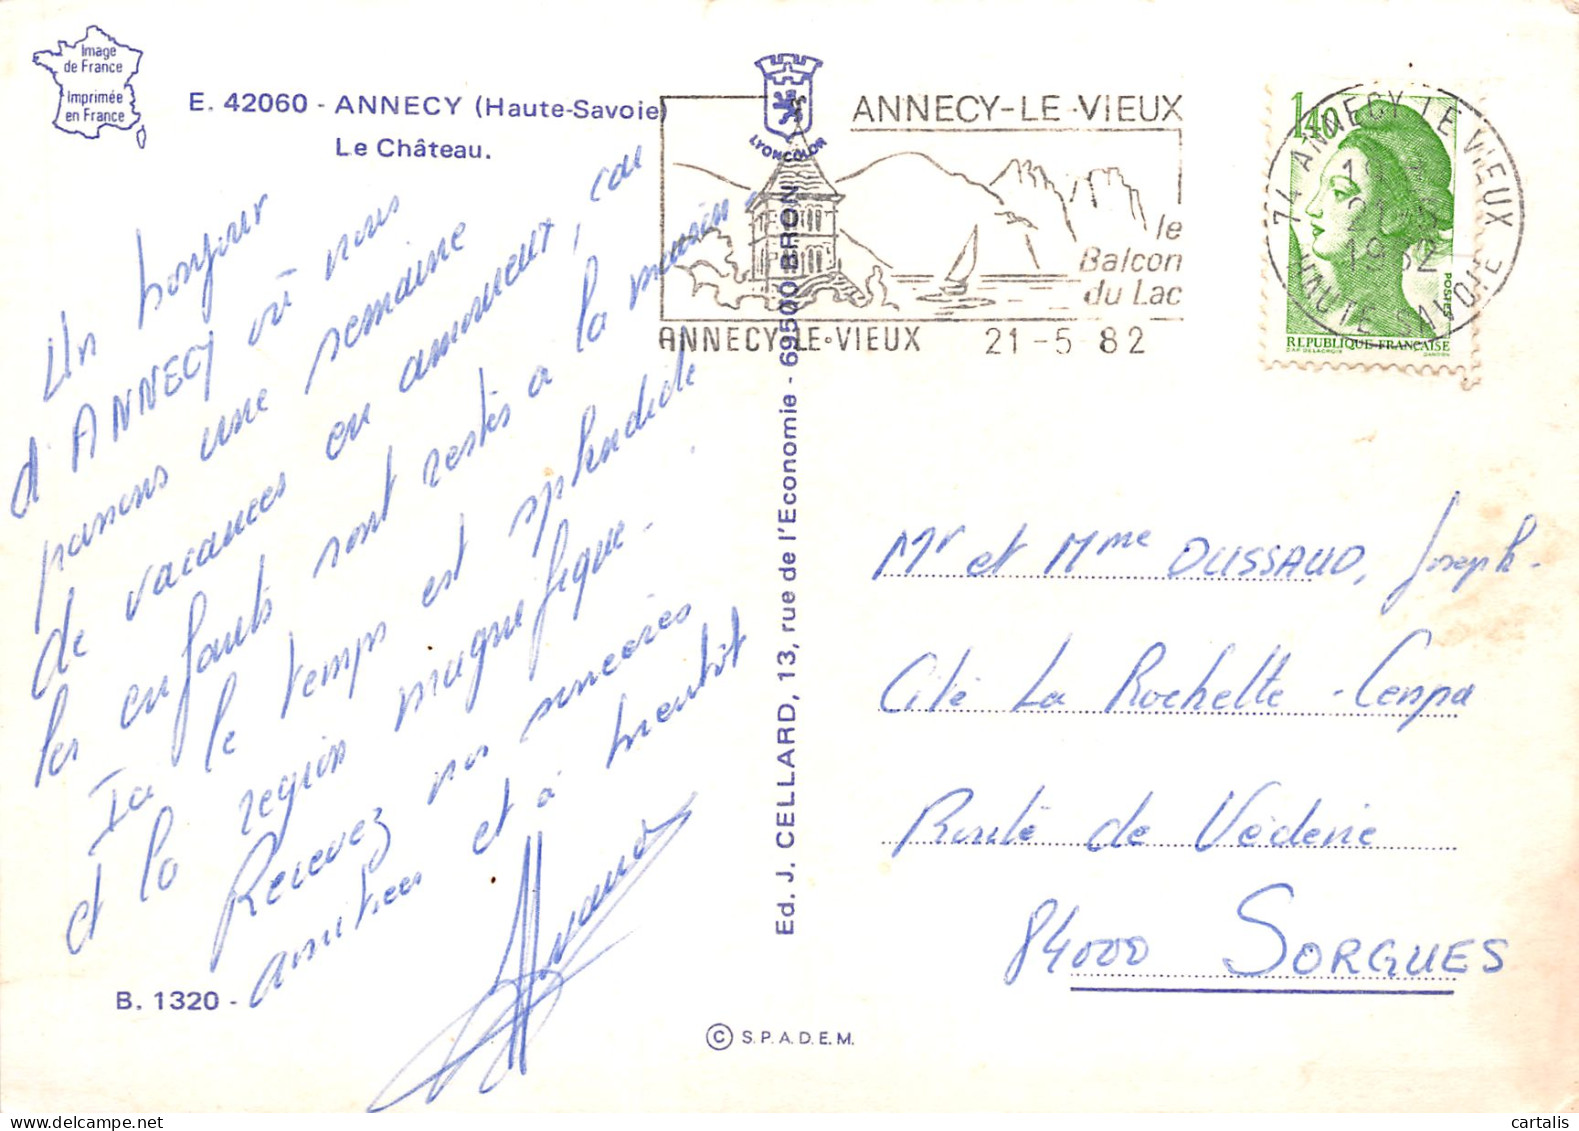 Image
de France
Imprimée
en France
E. 42060 - ANNECY (Haute-Savoie)
Le Château.
LYONCOLOR
ANNECY-LE-VIEUX
le
Balcon
du Lac
ANNECY-LE-VIEUX 21-5 82
1,40
POSTES
REPUBLIQUE FRANÇAISE
D'AP. DELACROIX GANDON
74 ANNECY LE VIEUX
21-5
1982
HAUTE SAVOIE
Un bonjour
d'ANNECY où nous
passons une semaine
de vacances en amoureux, car
les enfants sont restés à la maison -
Ici le temps est splendide
et la region magnefique.
Recevez nos sincères
amitiees et à bientôt
Ed. J. CELLARD, 13, rue de l'Economie - 69500 BRON
Mr et Mme DUSSAUD, Joseph.
Cité La Rochette - Cenpa
Route de Védène
84000 SORGUES
B. 1320 -
© S.P.A.D.E.M.
cartalis